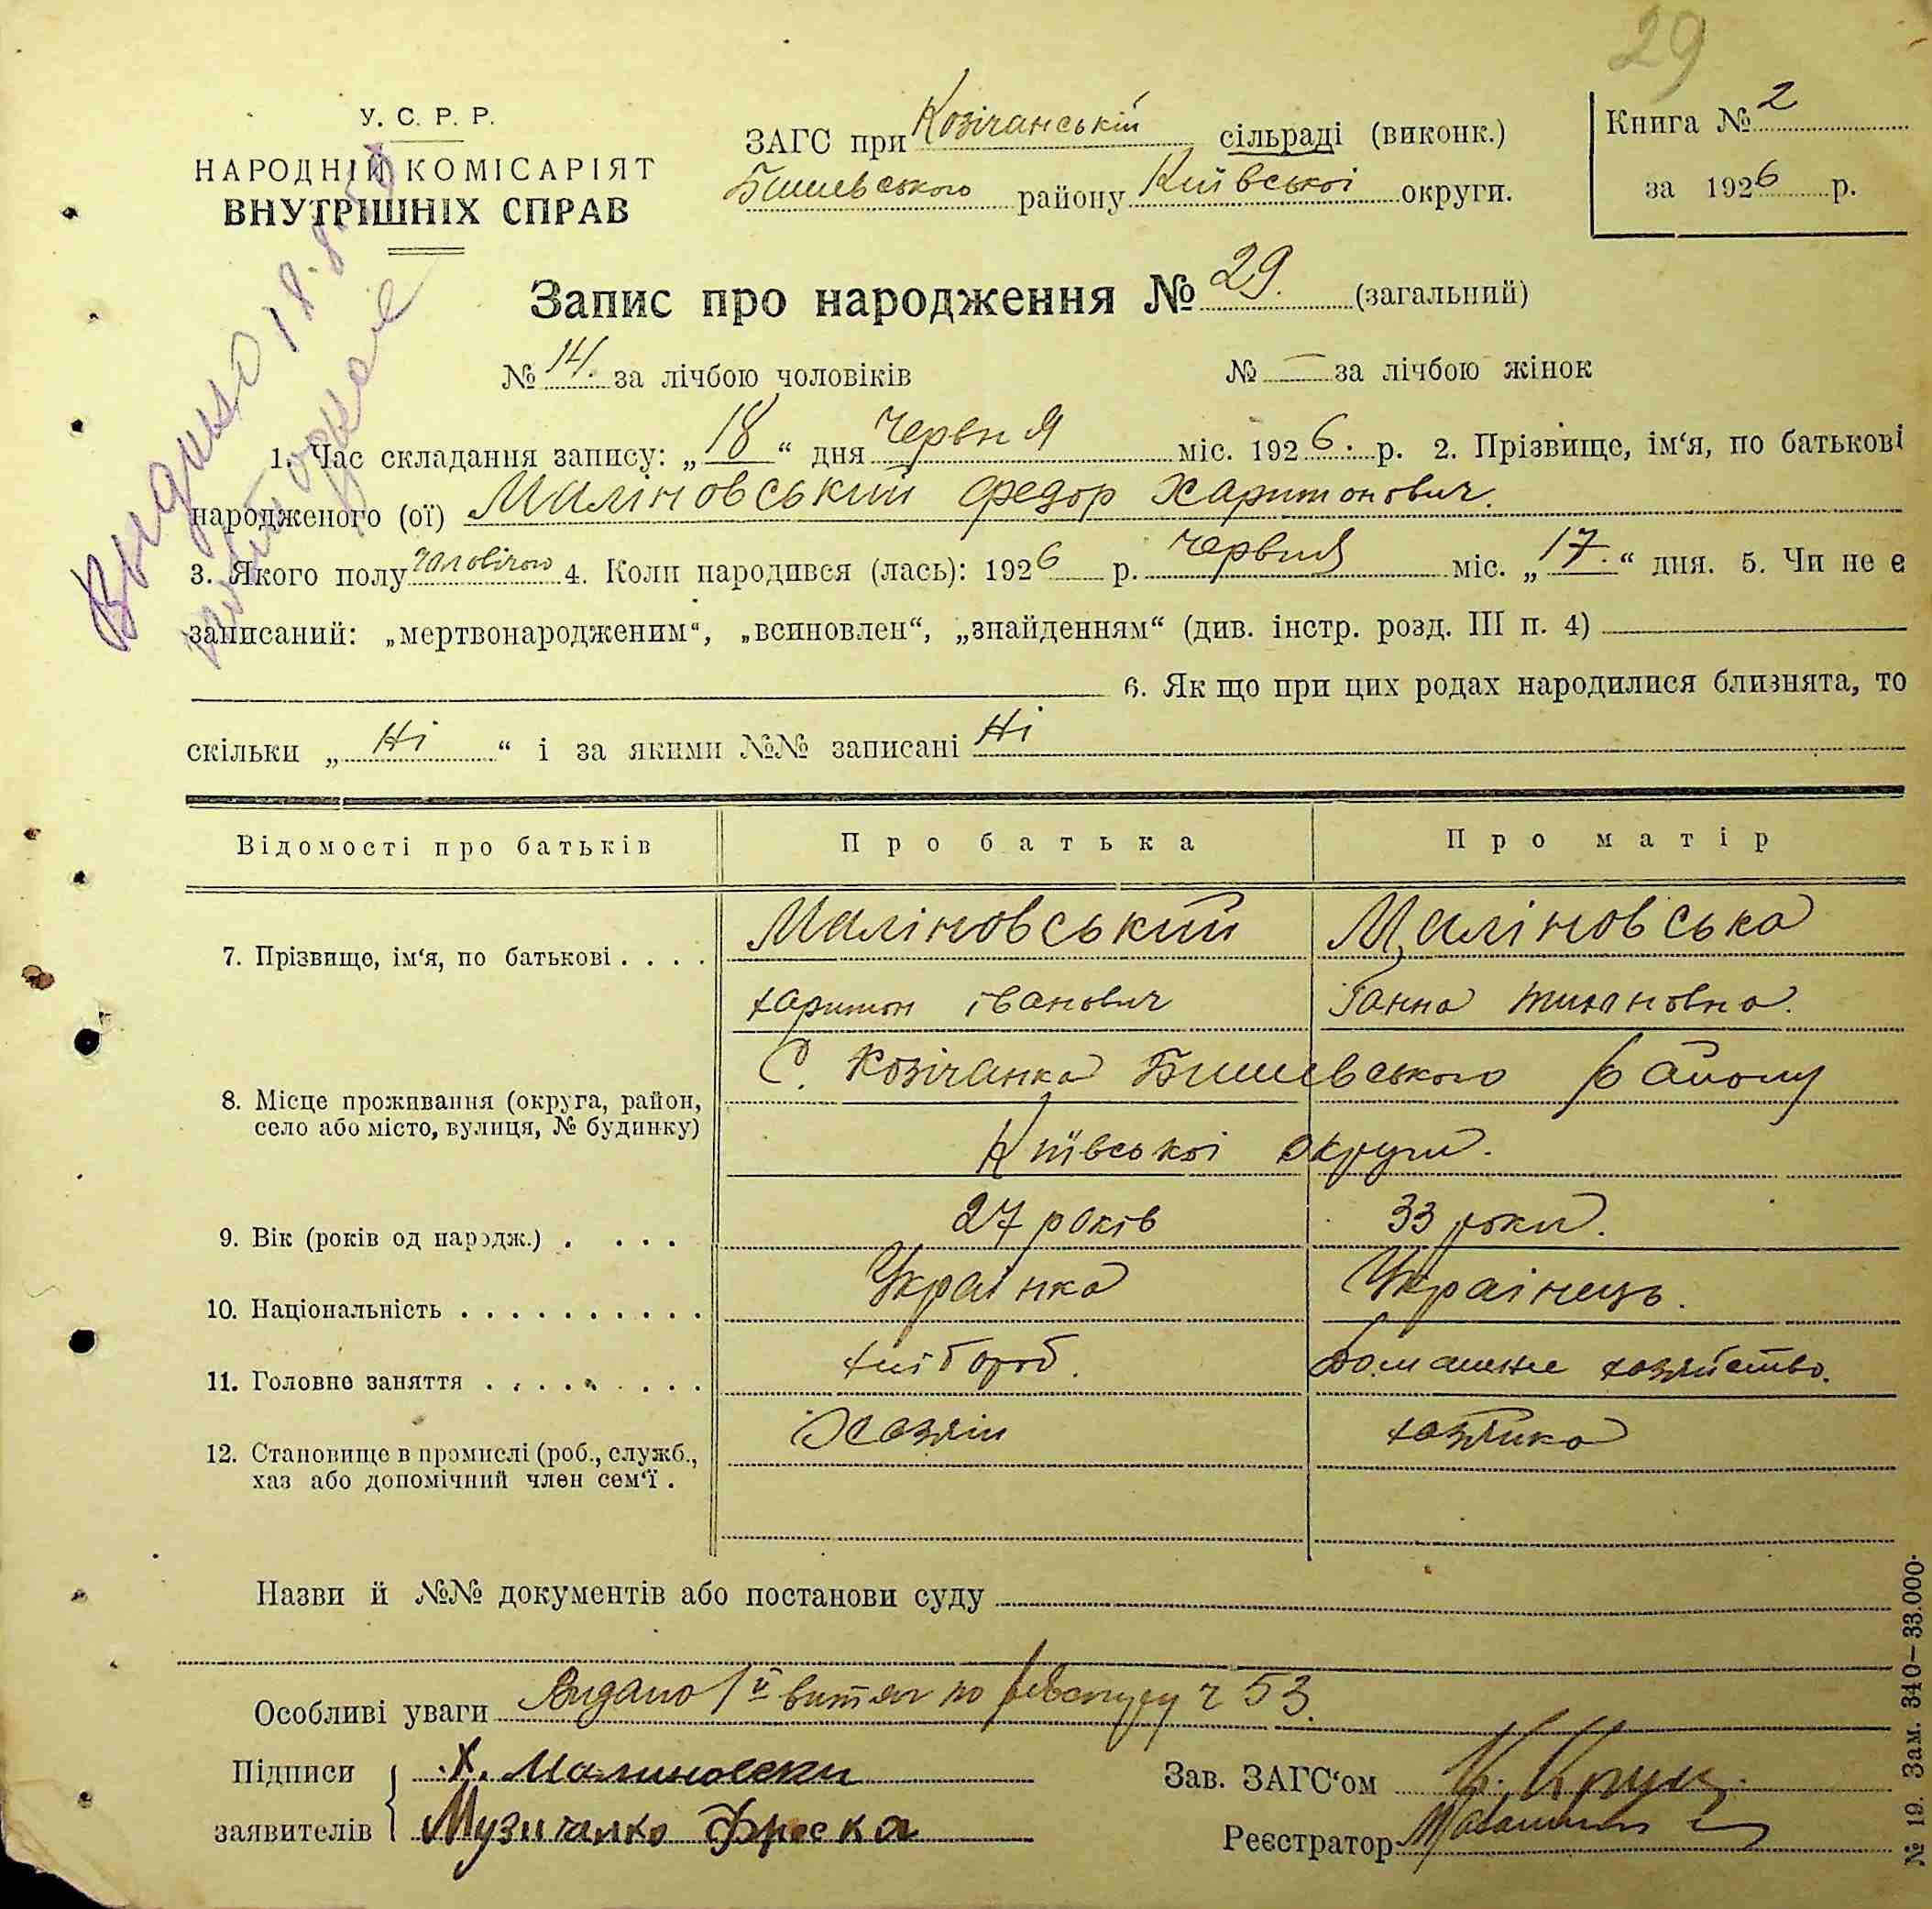 29
У. С. Р. Р.
НАРОДНІЙ КОМІСАРІЯТ
ВНУТРІШНІХ СПРАВ
ЗАГС при Козічанській сільраді (виконк.)
Бишевського району Київської округи.
Книга № 2
за 1926 р.
Запис про народження № 29. (загальний)
№ 14. за лічбою чоловіків № — за лічбою жінок
1. Час складання запису: „18“ дня червня міс. 1926. р. 2. Прізвище, ім‘я, по батькові
народженого (ої) Маліновський Федор Харитонович.
3. Якого полу 4. Коли народився (лась): 1926 р. червня міс. „17.“ дня. 5. Чи не є
записаний: „мертвонародженим“, „всиновлен“, „знайденням“ (див. інстр. розд. III п. 4)
6. Як що при цих родах народилися близнята, то
скільки „Ні“ і за якими №№ записані Ні
Відомості про батьків Про батька Про матір
7. Прізвище, ім‘я, по батькові . . . . Маліновський Маліновська
Харитон Іванович Ганна
8. Місце проживання (округа, район, село або місто, вулиця, № будинку) С. Козічанка Бишевського району
Київської округи.
9. Вік (років од народж.) . . . . 27 років 33 роки.
10. Національність . . . . . . . . . . Українка Українець.
11. Головне заняття . . . . . . . . хлібороб. Домашнє хозяйство.
12. Становище в промислі (роб., служб., хаз або допомічний член сем‘ї . Хозяїн хозяйка
Назви й №№ документів або постанови суду
Особливі уваги Видано 1й витяг по 53.
Підписи заявителів { Х. Малиновски
Музиченко Фроска
Зав. ЗАГС‘ом
Реєстратор
№ 19. Зам. 340—33.000.
Выдано 18.8.